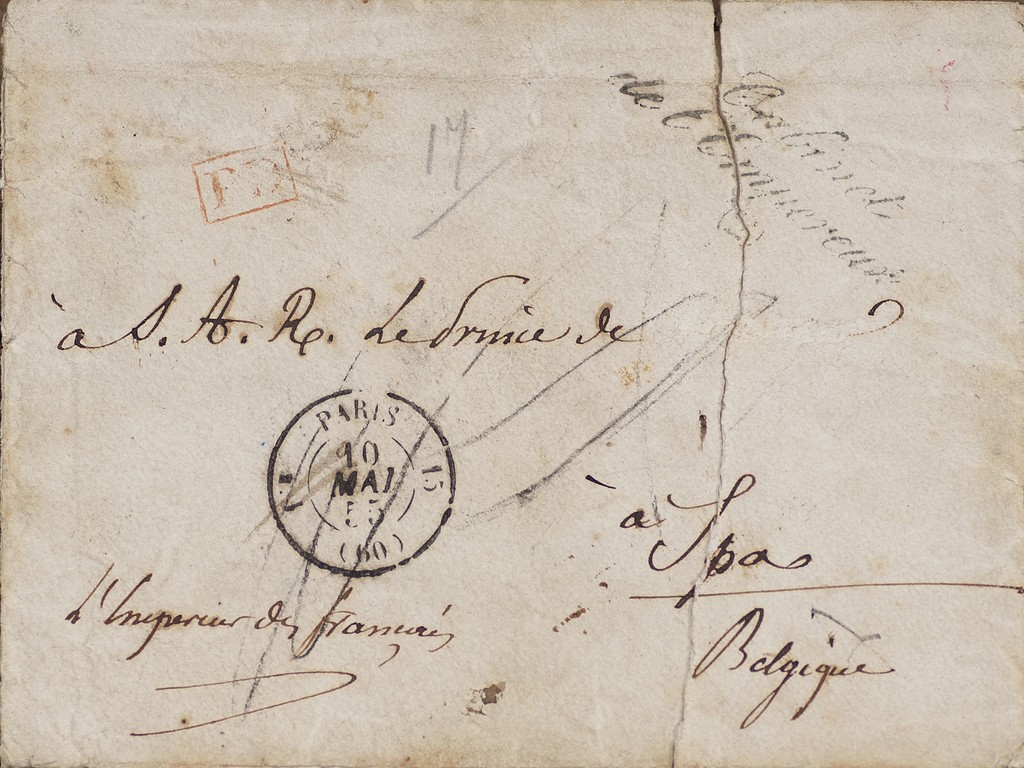 Cabinet
de l'Empereur
PD
17
à S. A. R. Le Prince de
PARIS
10
MAI
55
(60)
15
à Spa
L'Empereur des Français
Belgique